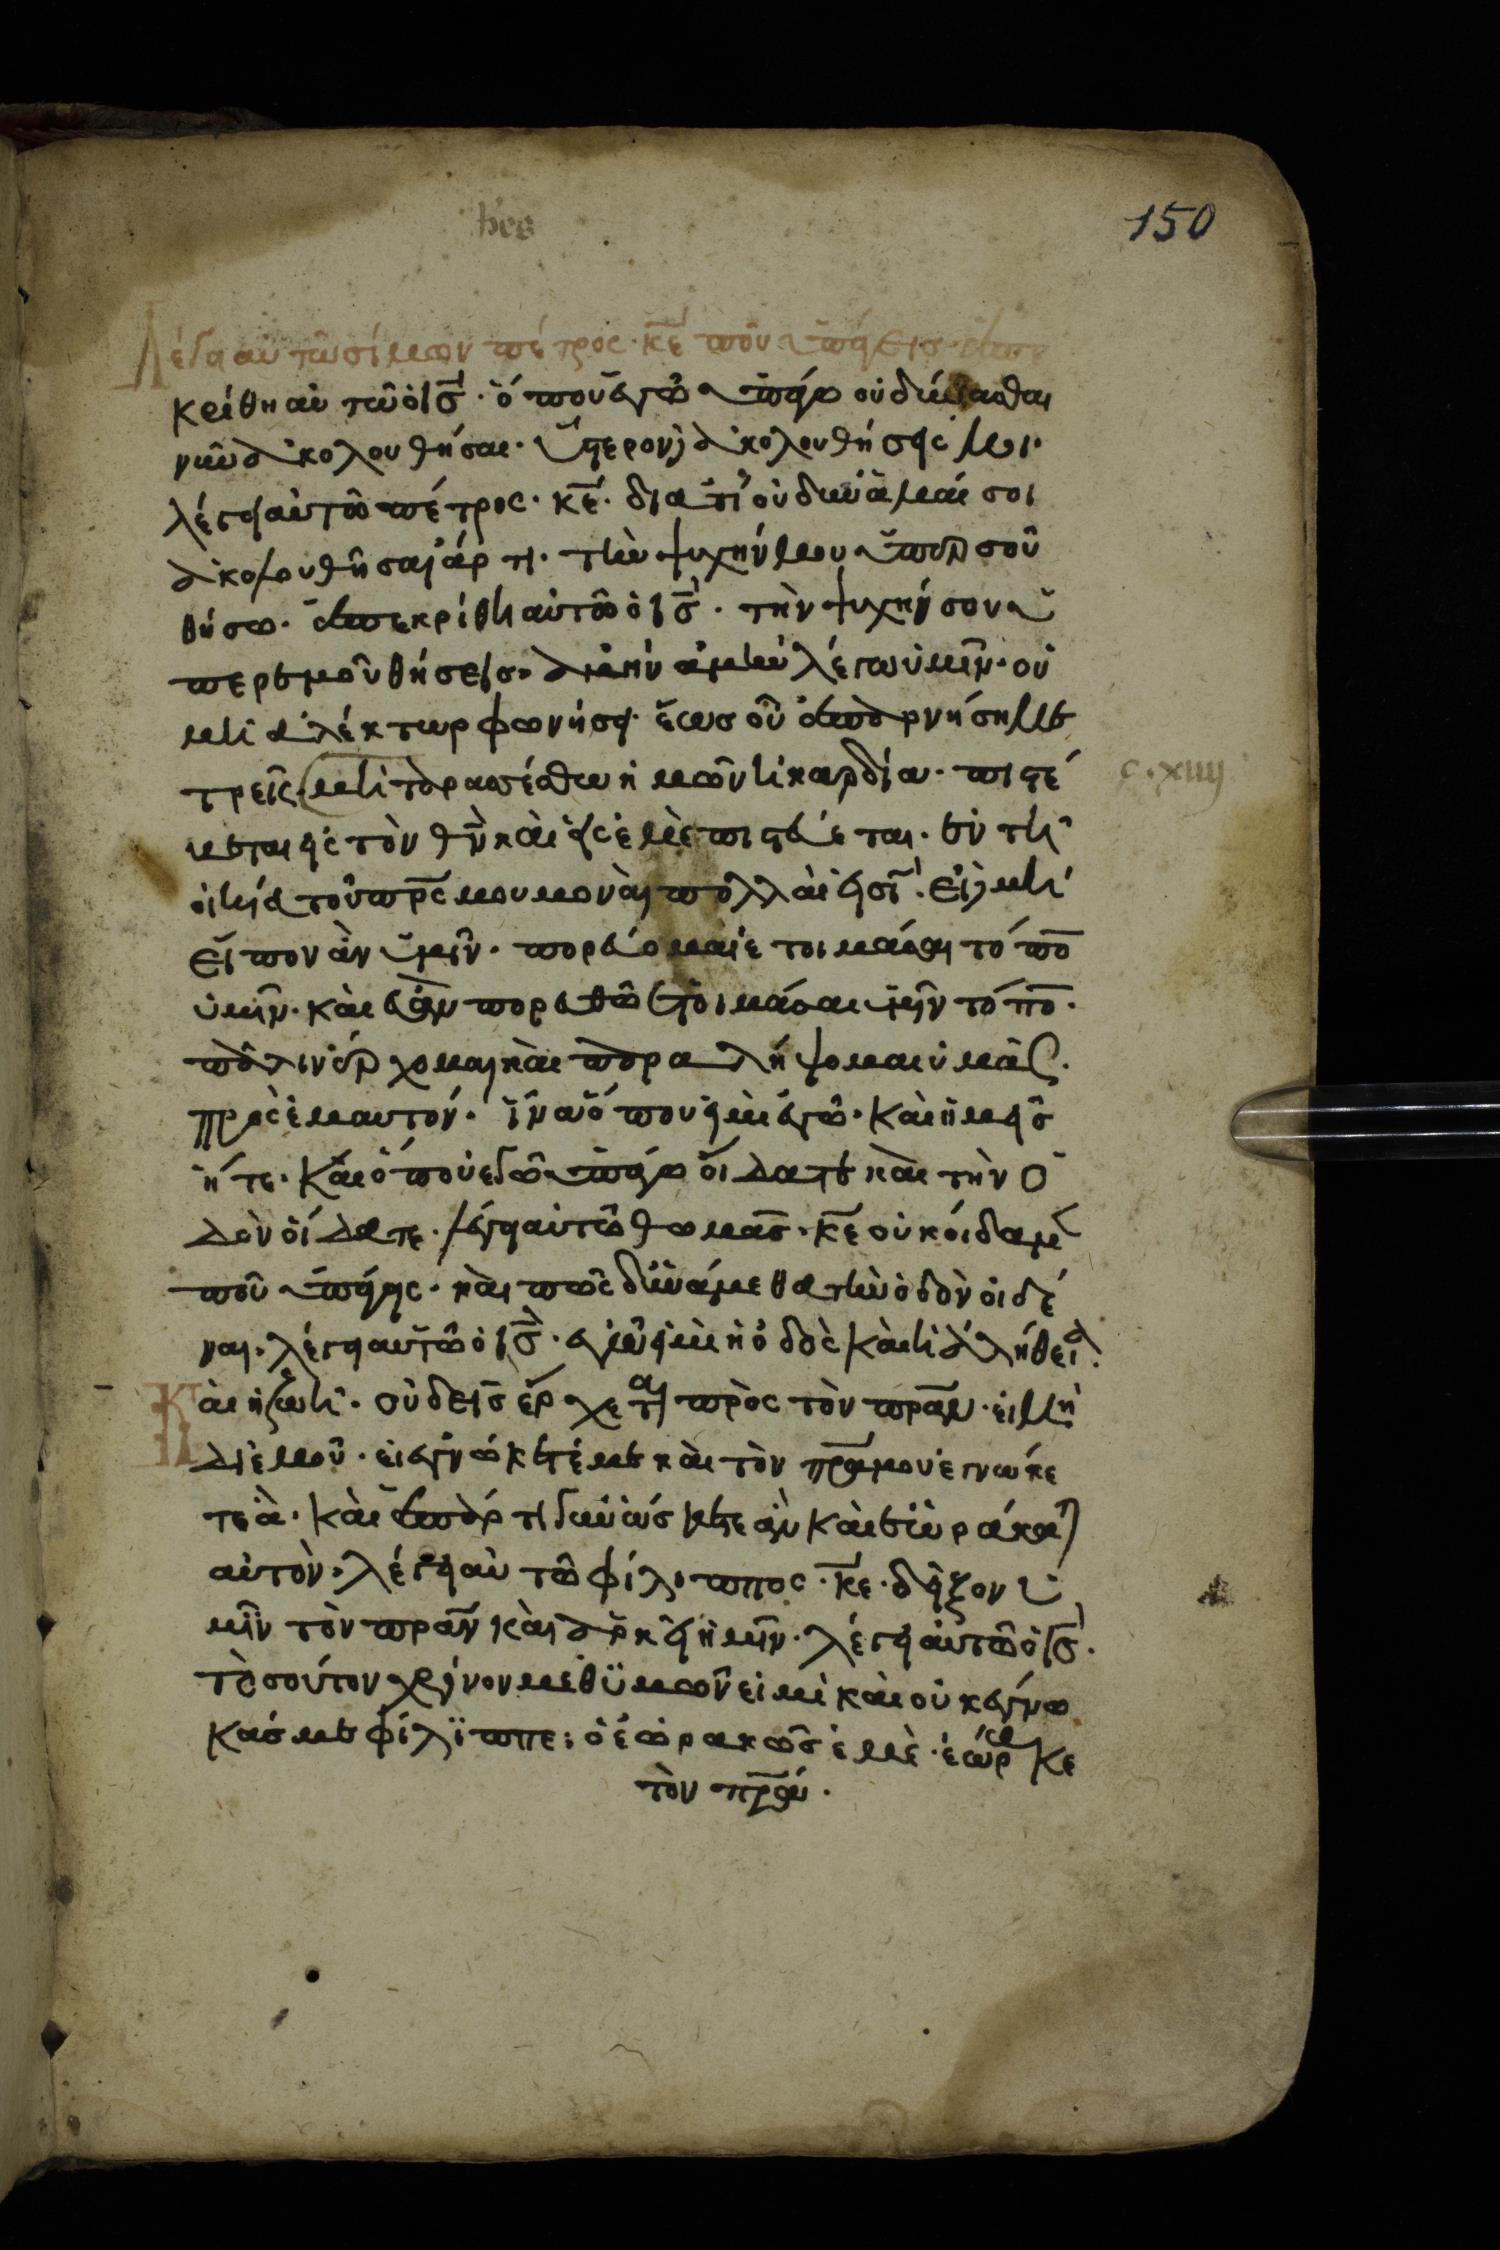 150
Λέγει αὐτῶ σίμων πέτρος· κε̅ ποῦ ὑπάγεις· ἀπε
κρίθη αὐτῶ ὁ ις̅· ὅπου ἐγὼ ὑπάγω οὐ δύνασαι
νῦν ἀκολουθήσαι· ὕστερον ἀκολουθήσεις μοι·
λέγει αὐτῶ πέτρος· κε̅· διατί οὐ δύναμαί σοι
ἀκολουθῆσαι ἄρτι· τὴν ψυχήν μου ὑπὲρ σοῦ
θήσω· ἀπεκρίθη αὐτῶ ὁ ις̅· τὴν ψυχήν σου ὑ
περ ἐμοῦ θήσεις· ἀμὴν ἀμὴν λέγω ὑμῖν· οὐ
μὴ ἀλέκτωρ φωνήσει· ἕως οὗ ἀπαρνήση με
τρεῖς· μὴ ταρασέσθω ἡμῶν ἡ καρδία· πιστέ
υεται εἰς τὸν θν̅ καὶ εἰς ἐμὲ πιστεύεται· ἐν τῆ
οἰκία τοῦ πρς̅ μου μοναὶ πολλαὶ εἰσῖ· εἰ μὴ
εἶπον ἂν ὑμῖν· πορεύομαι ἑτοιμάσαι τό πο̅
ὑμῖν· καὶ ἐὰν πορευθῶ ἑτοιμάσαι ὑμῖν τό πο̅·
πάλιν ἔρχομαι καὶ παραλήψομαι ὑμᾶς·
πρὸς ἐμαυτόν· ἵνα ὅπου εἰμὶ ἐγῶ· καὶ ἡμεῖς
ἦτε· Καὶ ὅπου ἐγῶ ὑπάγω οἴδατε καὶ τὴν ὁ
δὸν οἴδατε· λέγει αὐτῶ θωμας̅· κε̅ οὐκ οἴδαμε̅
ποῦ ὑπάγεις· καὶ πῶς δυνάμεθα τὴν ὁδὸν οἰδέ
ναι· λέγει αὐτῶ ὁ ις̅· ἐγὼ εἰμὶ ἡ ὁδὸς καὶ ἡ ἀλήθεια·
Καὶ ἡ ζωὴ· οὐδεὶς ἔρχεται πρὸς τὸν πρα̅· εἰ μὴ
δι ἐμοῦ· εἰ ἐγνώκετέ με καὶ τὸν πρα̅ μου ἐγνώκε
τε ἂ· καὶ ἀπάρτι γινώσκετε αὐ καὶ ἑωράκατε
αὐτὸν· λέγει αὐτῶ φίλιππος· κε̅· δεῖξον ὑ
μῖν τὸν πρα̅ν καὶ ἀρκεῖ ἡμῖν· λέγει αὐτῶ ὁ ις̅·
τοσοῦτον χρόνον μεθ ὑμῶν εἰμὶ καὶ οὐκ ἐγνω
κάς με φίλιππε; ὁ ἑωρακῶς ἐμὲ· ἑώρακε
τὸν πρα̅·
c·xiiij